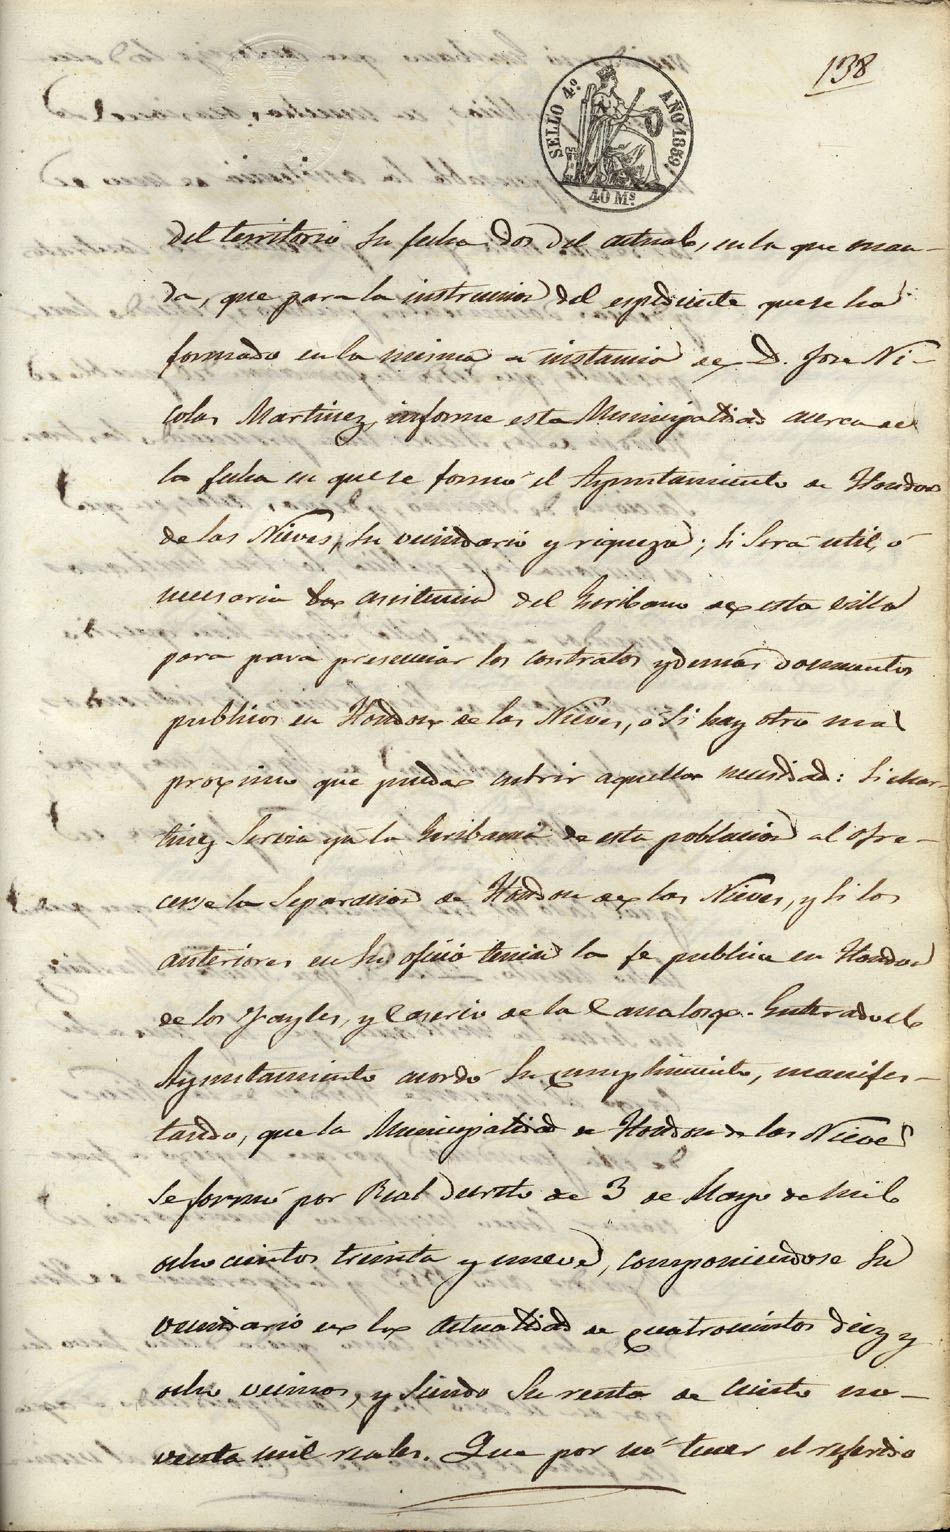 138
SELLO 4.º AÑO 1859.
40 Ms.
del territorio su fecha dos del actual, en la que man-
da, que para la instruccion del espediente que se ha
formado en la misma a instancia de D. Jose Ni-
colas Martinez, informe esta Municipalidad acerca de
la fecha en que se formó el Ayuntamiento de Hondon
de las Nieves, su vecindario y riqueza; si será util, ó
necesaria la asistencia del Escribano de esta villa
para para presenciar los contratos y demas documentos
publicos en Hondon de las Nieves, ó si hay otro mas
proximo que pueda cubrir aquella necesidad: si Mar-
tinez servia ya la Escribania de esta poblacion al ofre-
cerse la separacion de Hondon de las Nieves, y si los
anteriores en su oficio tenian la fe publica en Hondon
de los Frayles, y Caserio de la Canalosa. Enterado el
Ayuntamiento acordó su cumplimiento, manifes-
tando, que la Municipalidad de Hondon de las Nieves
se formó por Real Decreto de 3 de Mayo de mil
ocho cientos treinta y nueve, componiendose su
vecindario en la actualidad de cuatrocientos diez y
ocho vecinos, y siendo su renta de ciento no-
venta mil reales. Que por nó tener el referido